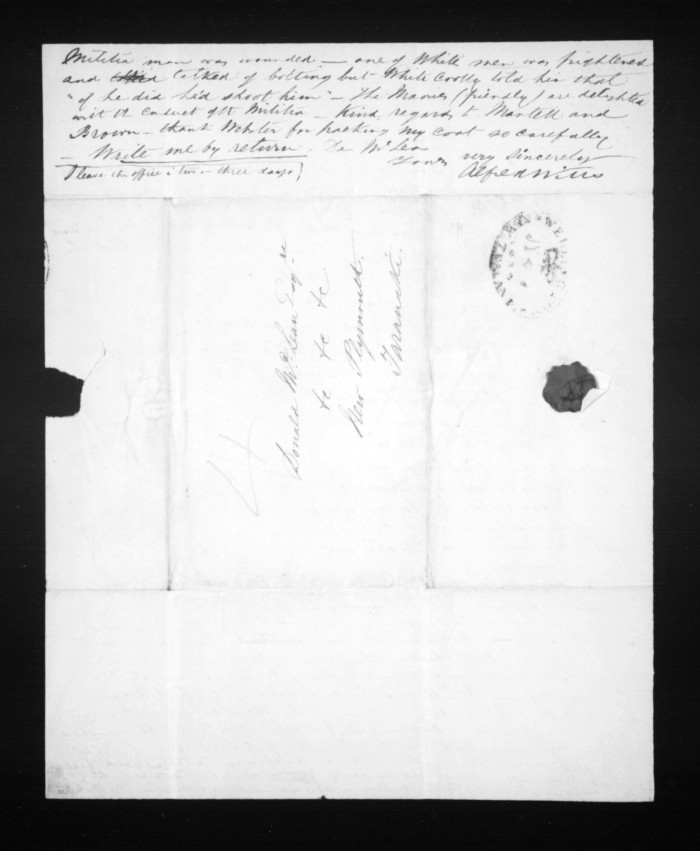 Militia man was wounded - one of White men was frightened
and talked of bolting but White Coolly told him that
"if he did he'd shoot him" - The Maories (friendly) are delighted
with the Conduct of the Militia - Kind regards to Martell and
Brown - thank Webster for packing my Coat so carefully
- Write me by return. Dr McLean
Yours very sincerely
Alfred Wills
Please the office in two or three days}
4
Donald McLean Esqre
&c &c &c
New Plymouth.
Taranaki.